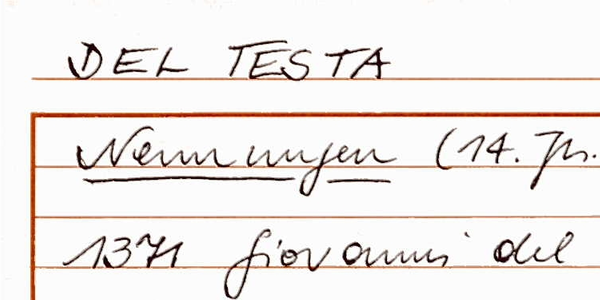 DEL TESTA
Nennungen (14. Jh.
1371 Giovanni del